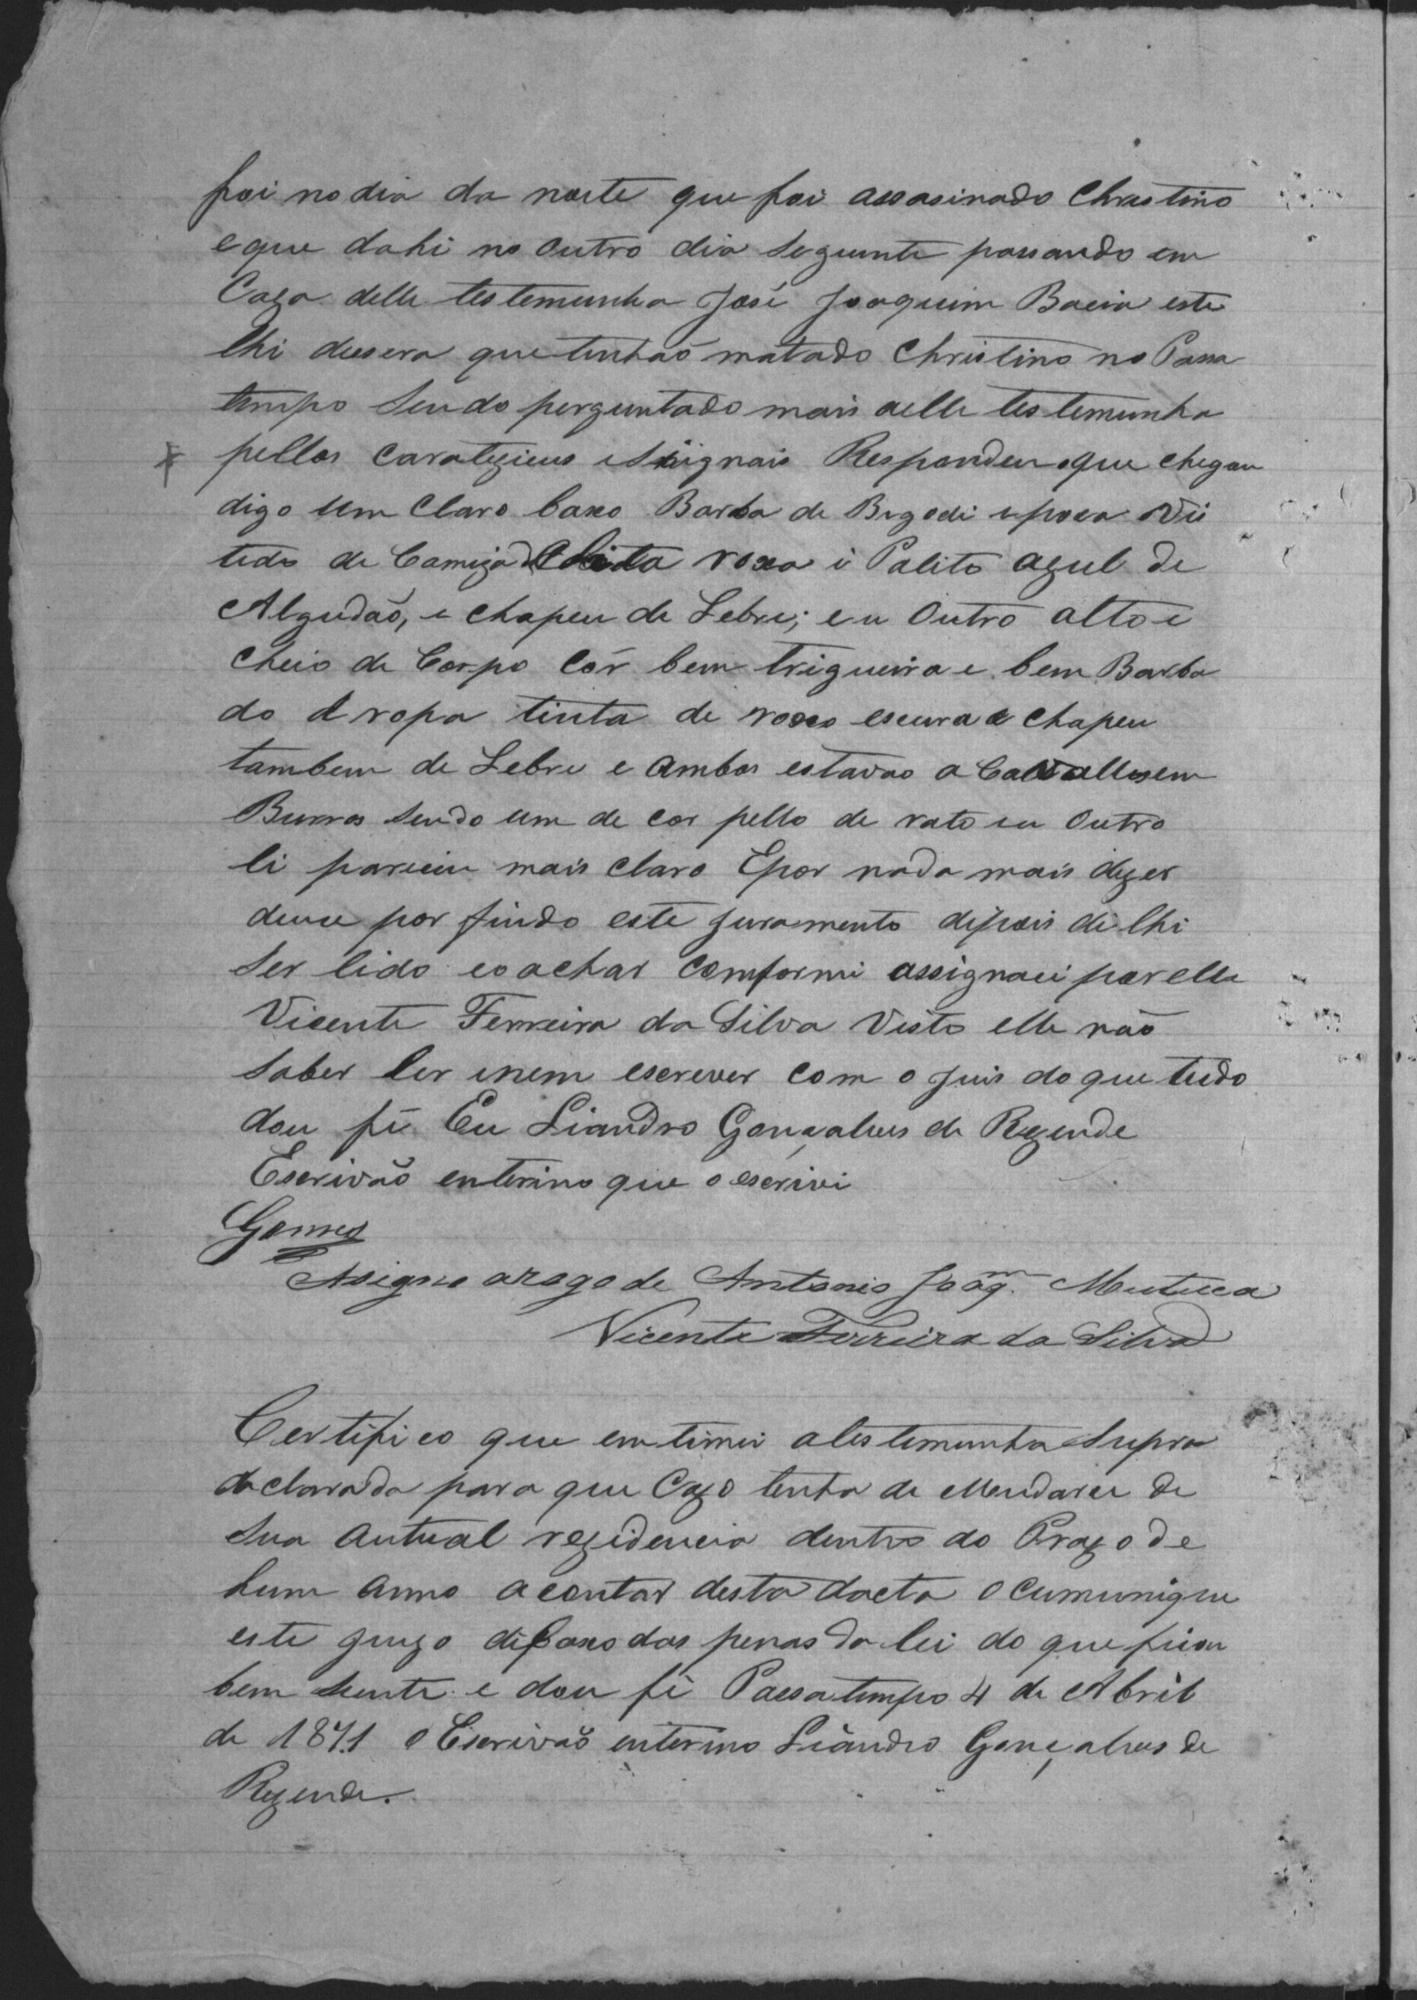 foi no dia da noite que foi assasinado Christino
e que dahi no outro dia Seguinte passando em
Caza delle testemunha José Joaquim Bacia este
lhi dissera que tinhaõ matado Christino no Passa
tempo Sendo perguntado mais a elle testemunha
pellos e Signais Respondeu que chegou
digo um Claro baxo Barba de Bigodi e pora Vis
tido de Camiza de Chita roxa i Palito azul de
Algudaõ, e chapeu de Lebre; e u Outro alto e
Cheio de Corpo Côr bem trigueira e bem Barba
do e ropa tinta de roxo escura e chapeu
tambem de Lebre e ambos estavaõ a Cavallos em
Burros Sendo um de cor pello de rato e u Outro
li pareceu mais Claro E por nada mais dizer
deuce por findo este juramento depois de lhi
Ser lido e o achar comformi assignou por elle
Vicente Ferreira da Silva Visto elle naõ
Saber ler i nem escrever com o Juis do que tudo
dou fé Eu Liandro Gonçalves de Rezende
Escrivaõ enterino que o escrivi
Gomes
Asigno a rogo de Antonio Joaqm. Mutuca
Vicente Ferreira da Silva
Certifico que emtimei a testemunha Supra
declarada para que Cazo tenha de Mendarce de
Sua autual rezidencia dentro do Prazo de
hum anno a contar desta dacta o Cumunique
este juizo debaxo das penas da lei do que ficou
bem Siente e dou fé Passatempo 4 de Abril
de 1871 o Escrivaõ enterino Liandro Gonçalves de
Rezende.